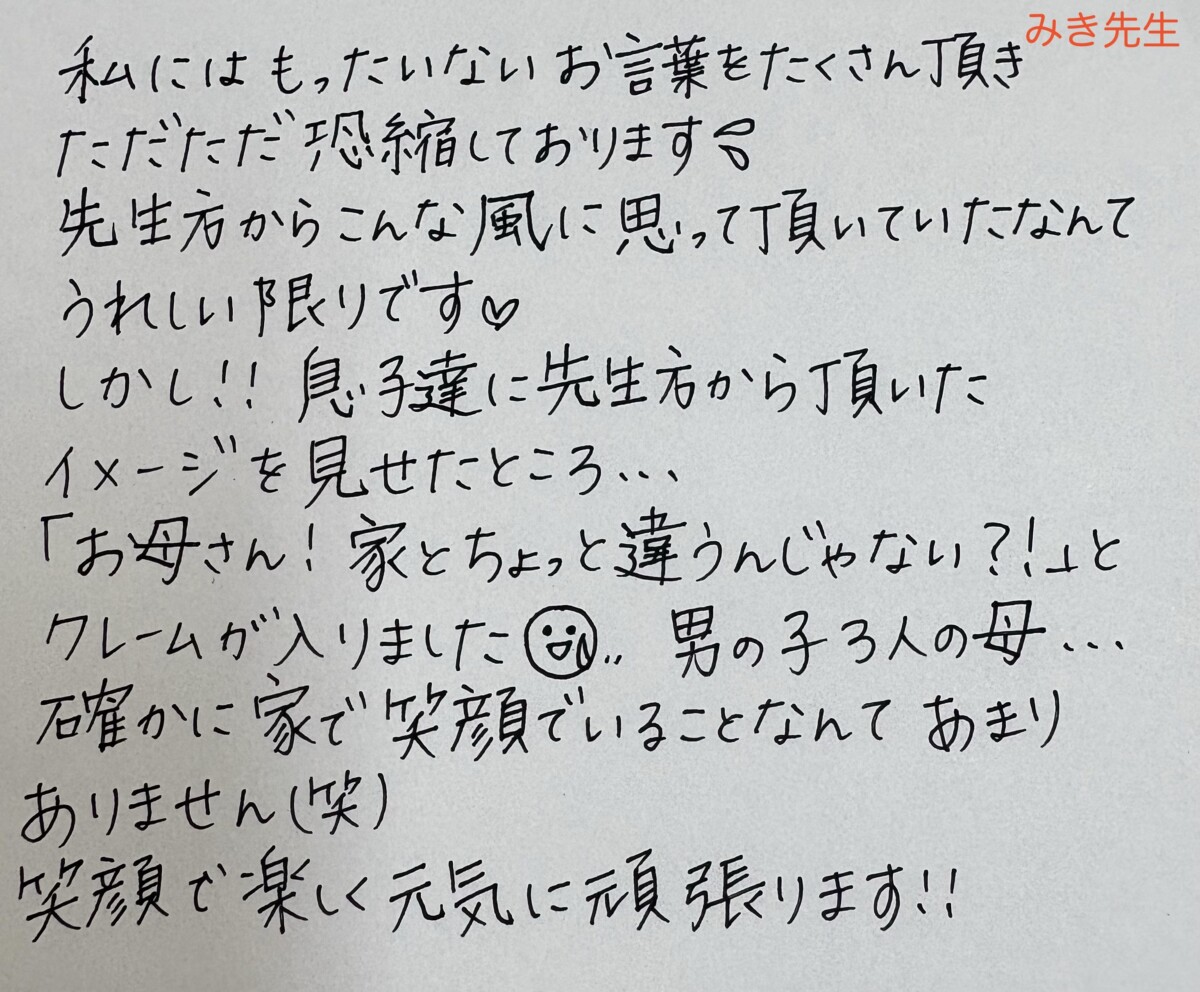 みき先生
私にはもったいないお言葉をたくさん頂き
ただただ恐縮しております
先生方からこんな風に思って頂いていたなんて
うれしい限りです♡
しかし!! 息子達に先生方から頂いた
イメージを見せたところ...
「お母さん! 家とちょっと違うんじゃない?!」と
クレームが入りました 男の子3人の母...
確かに家で笑顔でいることなんて あまり
ありません(笑)
笑顔で楽しく元気に頑張ります!!